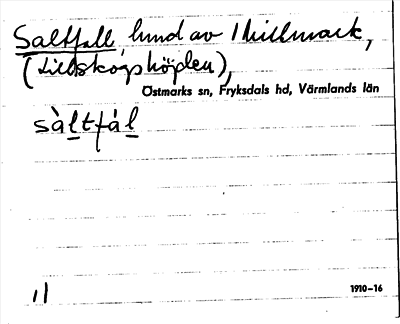 Saltfall, lund av Millmark,
(Lillskogshöjden),
Östmarks sn, Fryksdals hd, Värmlands län
sàltfál
1910-16